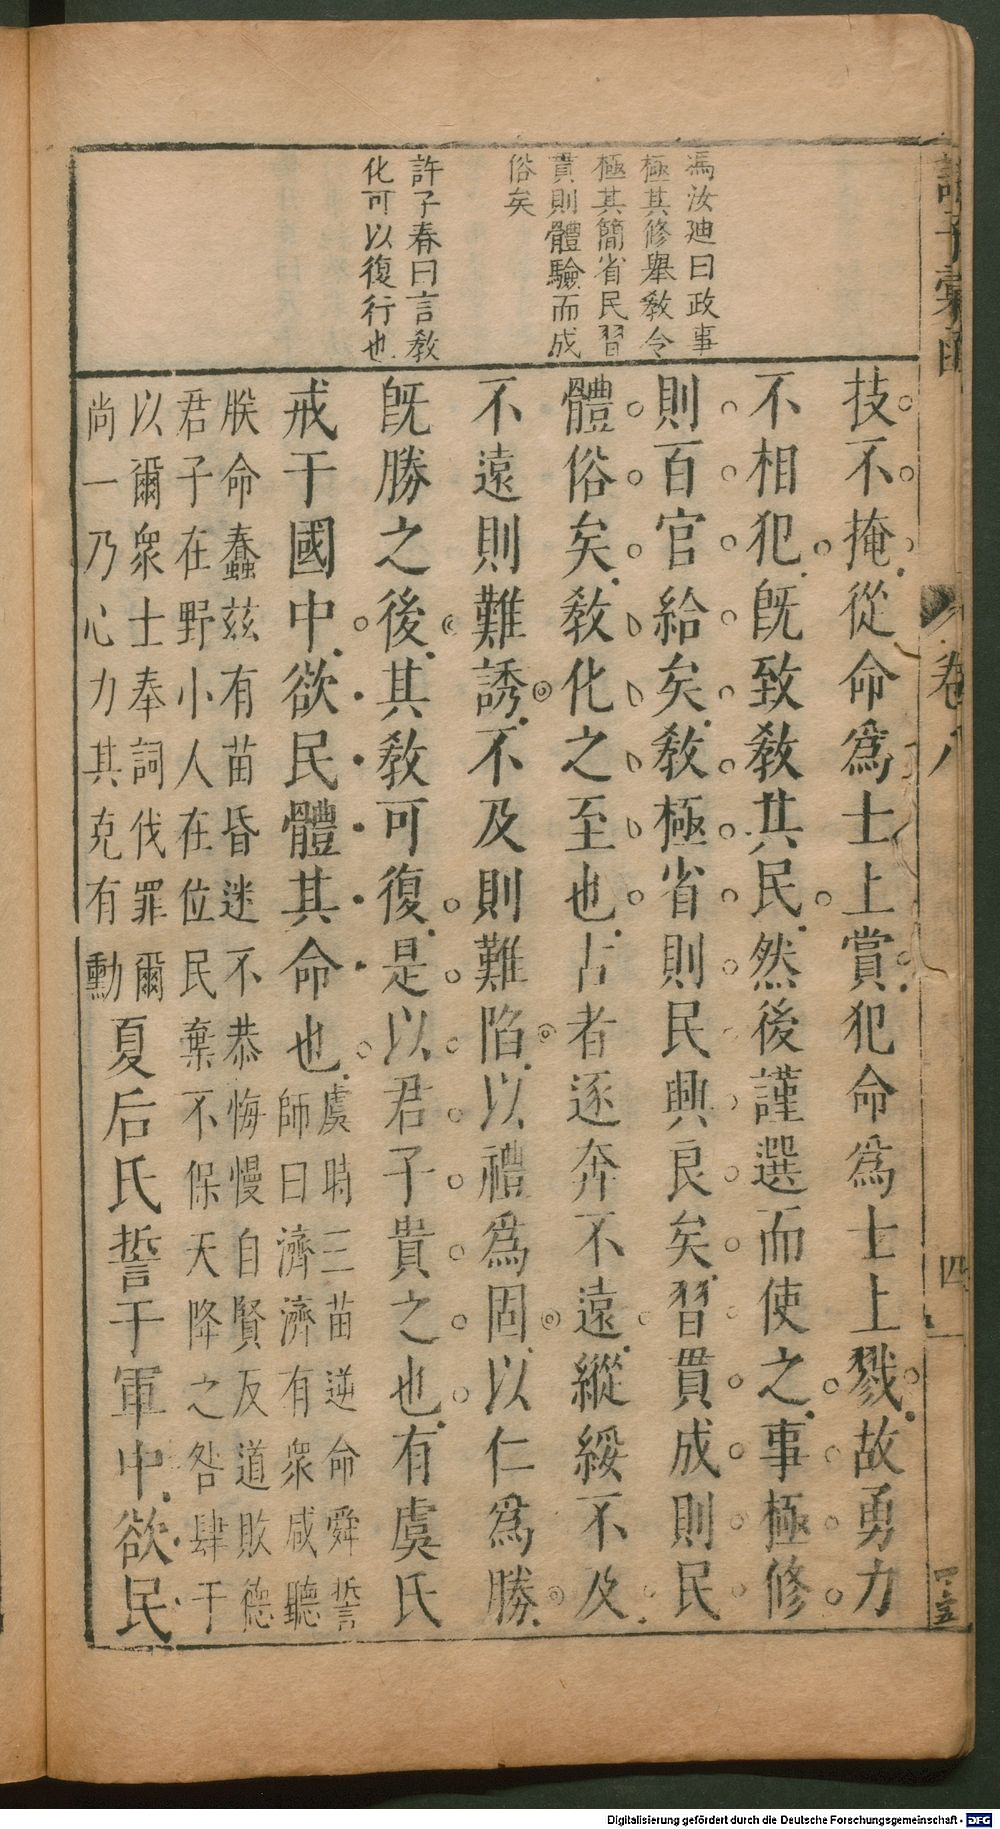 諸子彙函
卷八
四
馮汝廸曰政事
極其修舉敎令
極其簡省民習
貫則體驗而成
俗矣
許子春曰言敎
化可以復行也
技不掩從命爲士上賞犯命爲士上戮故勇力
不相犯旣致敎其民然後謹選而使之事極修
則百官給矣敎極省則民興良矣習貫成則民
體俗矣敎化之至也古者逐奔不遠縱綏不及
不遠則難誘不及則難陷以禮爲固以仁爲勝
旣勝之後其敎可復是以君子貴之也有虞氏
戒于國中欲民體其命也
虞時三苗逆命舜誓
師曰濟濟有衆咸聽
朕命蠢兹有苗昏迷不恭侮慢自賢反道敗德
君子在野小人在位民棄不保天降之咎肆于
以爾衆士奉詞伐罪爾
尚一乃心力其克有勳
夏后氏誓于軍中欲民
Digitalisierung gefördert durch die Deutsche Forschungsgemeinschaft - DFG